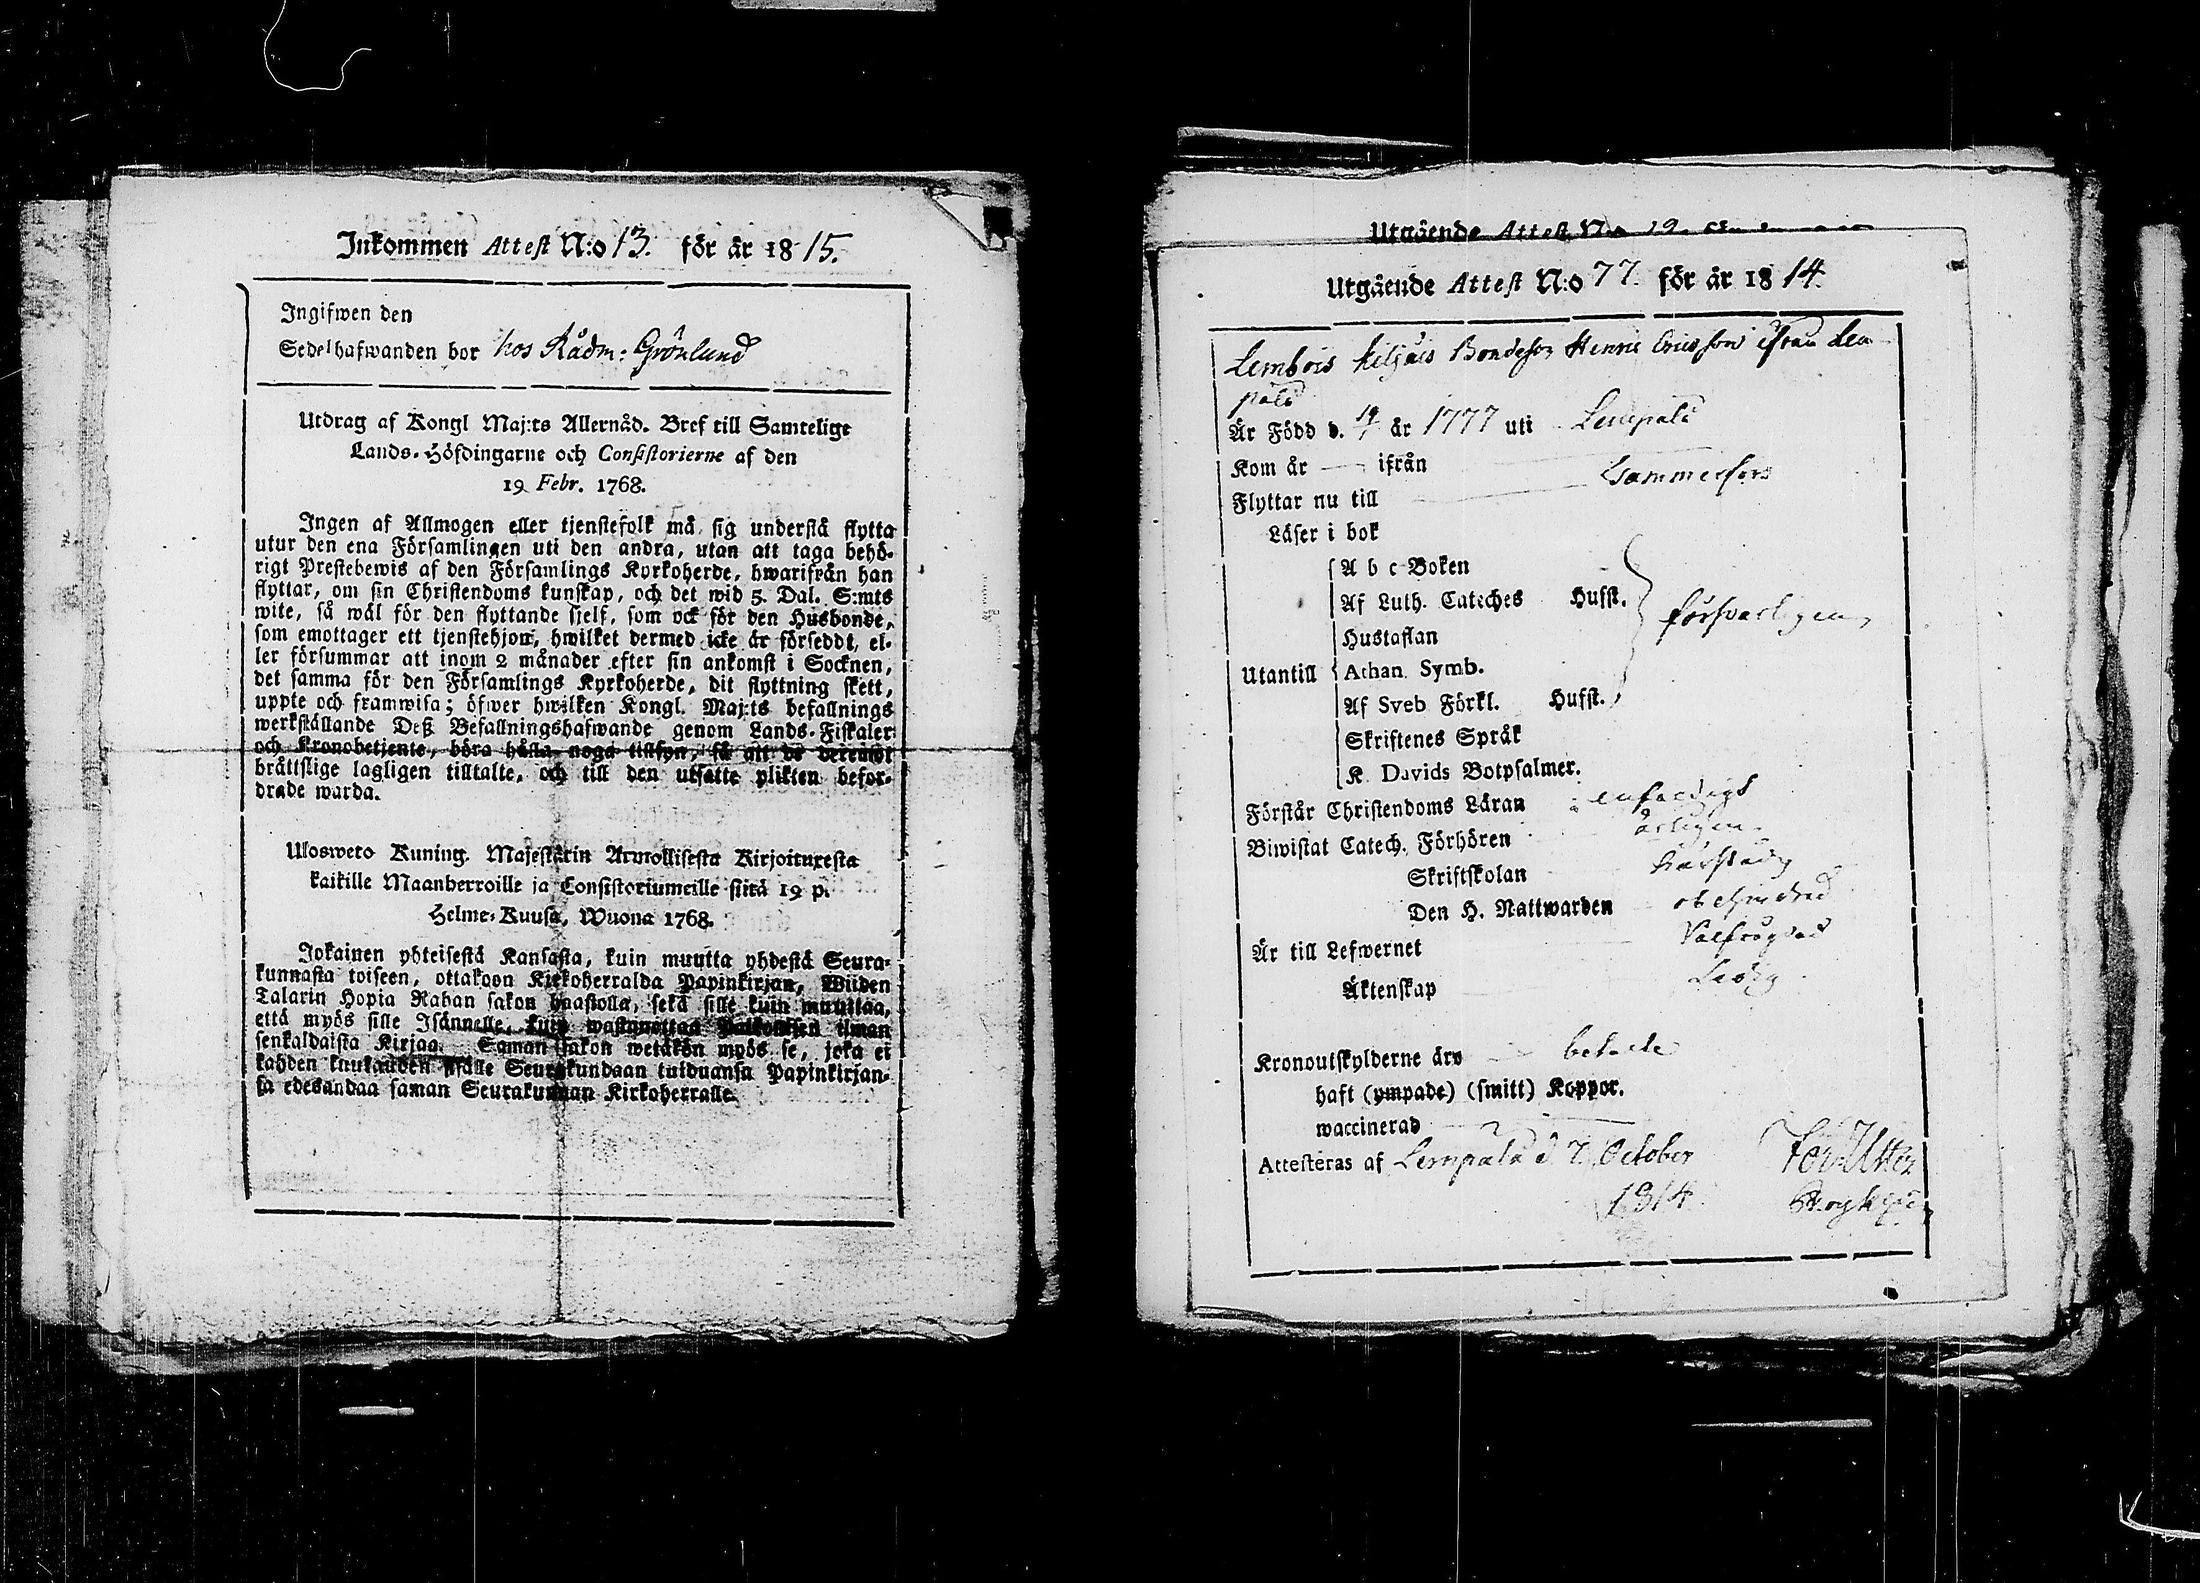 Inkommen Attest N:o 13. för år 1815.
Ingifwen den
Sedelhafwanden bor hos Rådm: Grönlund
Utdrag af Kongl Maj:ts Allernåd. Bref till Samtelige
Lands-Höfdingarne och Consistorierne af den
19 Febr. 1768.
Ingen af Allmogen eller tjenstefolk må sig understå flytta
utur den ena Församlingen uti den andra, utan att taga behö-
rigt Prestebewis af den Församlings Kyrkoherde, hwarifrån han
flyttar, om sin Christendoms kunskap, och det wid 5. Dal. S:mts
wite, så wäl för den flyttande sjelf, som ock för den Husbonde,
som emottager ett tjenstehjon, hwilket dermed icke är förseddt, el-
ler försummar att inom 2 månader efter sin ankomst i Socknen,
det samma för den Församlings Kyrkoherde, dit flyttning skett,
uppte och framwisa; öfwer hwilken Kongl. Maj:ts befallnings
werkställande Deß Befallningshafwande genom Lands-Fiskaler
och Kronobetjente, böra hålla noga tillsyn, så att de deremot
bråttslige lagligen tilltalte, och till den utsatte plikten befor-
drade warda.
Ulosweto Kuning. Majestetin Armollisesta Kirjoituxesta
kaikille Maanherroille ja Consistoriumeille siitä 19 p.
Helme-Kuusa, Wuona 1768.
Jokainen yhteisestä Kansasta, kuin muutta yhdestä Seura-
kunnasta toiseen, ottakoon Kirkoherralda Papinkirjan, Wiiden
Talarin Hopia Rahan sakon haastolla, sekä sille kuin muuttaa,
että myös sille Isännelle, kuin wastanottaa Palkollisen ilman
senkaldaista Kirjaa. Saman sakon wetäkön myös se, joka ei
kahden kuukauden sisälle Seurakundaan tulduansa Papinkirjan-
sa edesandaa saman Seurakunnan Kirkoherralle.
Utgående Attest N:o
Utgående Attest N:o 77. för år 1814.
Lembois Bondeson Henric Ericsson ifrån Lem-
pälä
Är Född d. år 1777 uti Lempälä
Kom år — ifrån
Flyttar nu till Tammerfors
Läser i bok
A b c-Boken
Af Luth. Cateches Hufst.
Hustaflan försvarligen
Utantill Athan. Symb.
Af Sveb Förkl. Hufst.
Skriftenes Språk
K. Davids Botpsalmer.
Förstår Christendoms Läran enfaldigt
Biwistat Catech. Förhören årligen
Skriftskolan
Den H. Nattwarden obehindrad
Är till Lefwernet välfrägdad
Äktenskap Ledig
Kronoutskylderne äro betalte
haft (ympade) (smitt) Koppor.
waccinerad
Attesteras af Lempälä d 7 October
1814